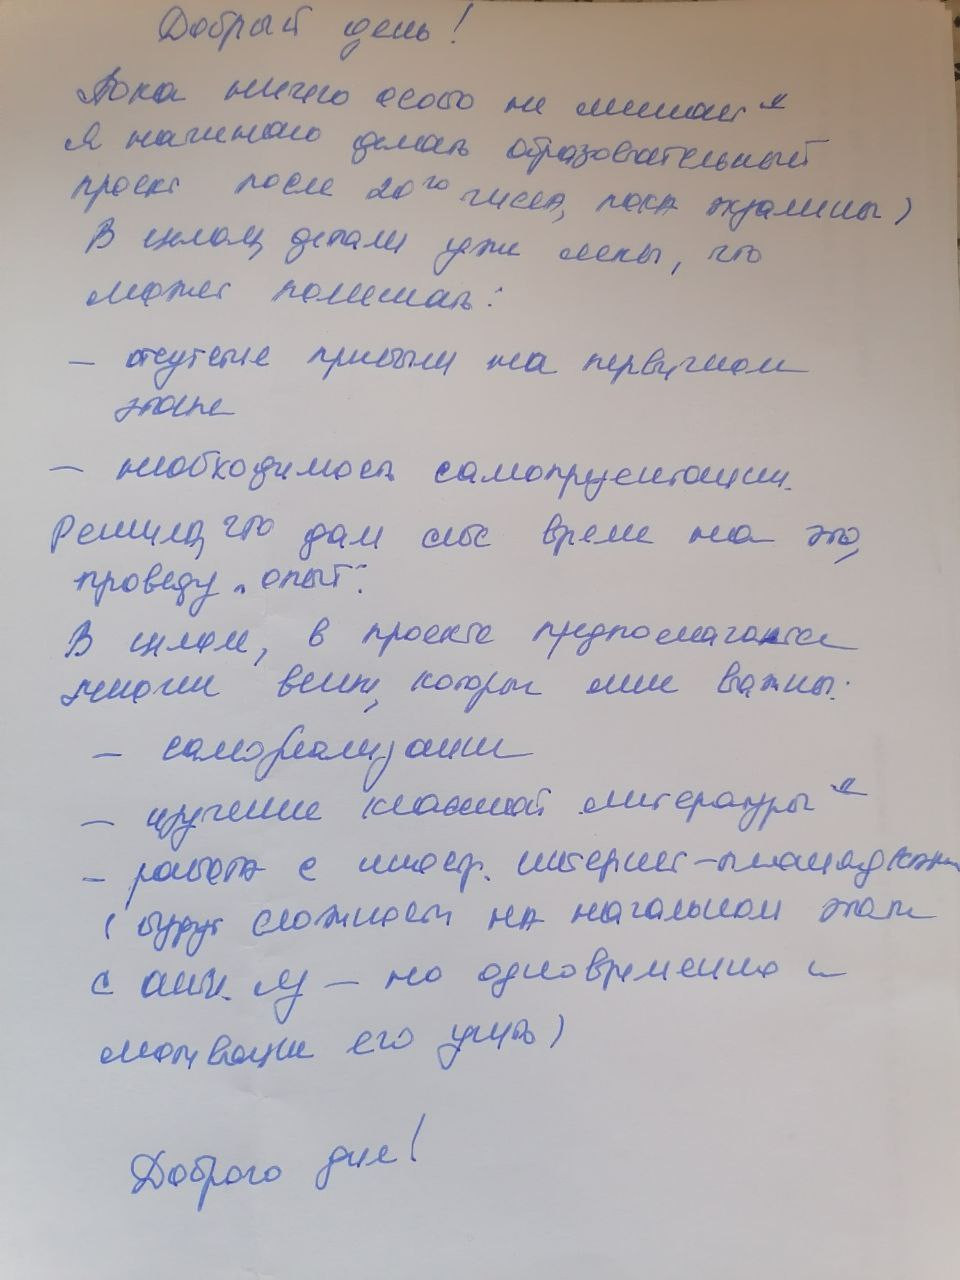 Добрый день!
Пока ничего особо не мешает
Я начинаю делать образовательный
проект после 20го числа, пока экзамены)
В целом, детали уже ясны, что
может помешать:
– отсутствие прибыли на первичном
этапе
– необходимость самопрезентации.
Решила, что дам себе время на это,
проведу "опыт".
В целом, в проекте предполагаются
многие вещи, которые мне важны:
– самореализации
– изучение классной литературы
– работа с иностр. интернет-площадками
(будут сложности на начальном этапе
с англ. яз – но одновременно и
мотивации его учить)
Доброго дня!